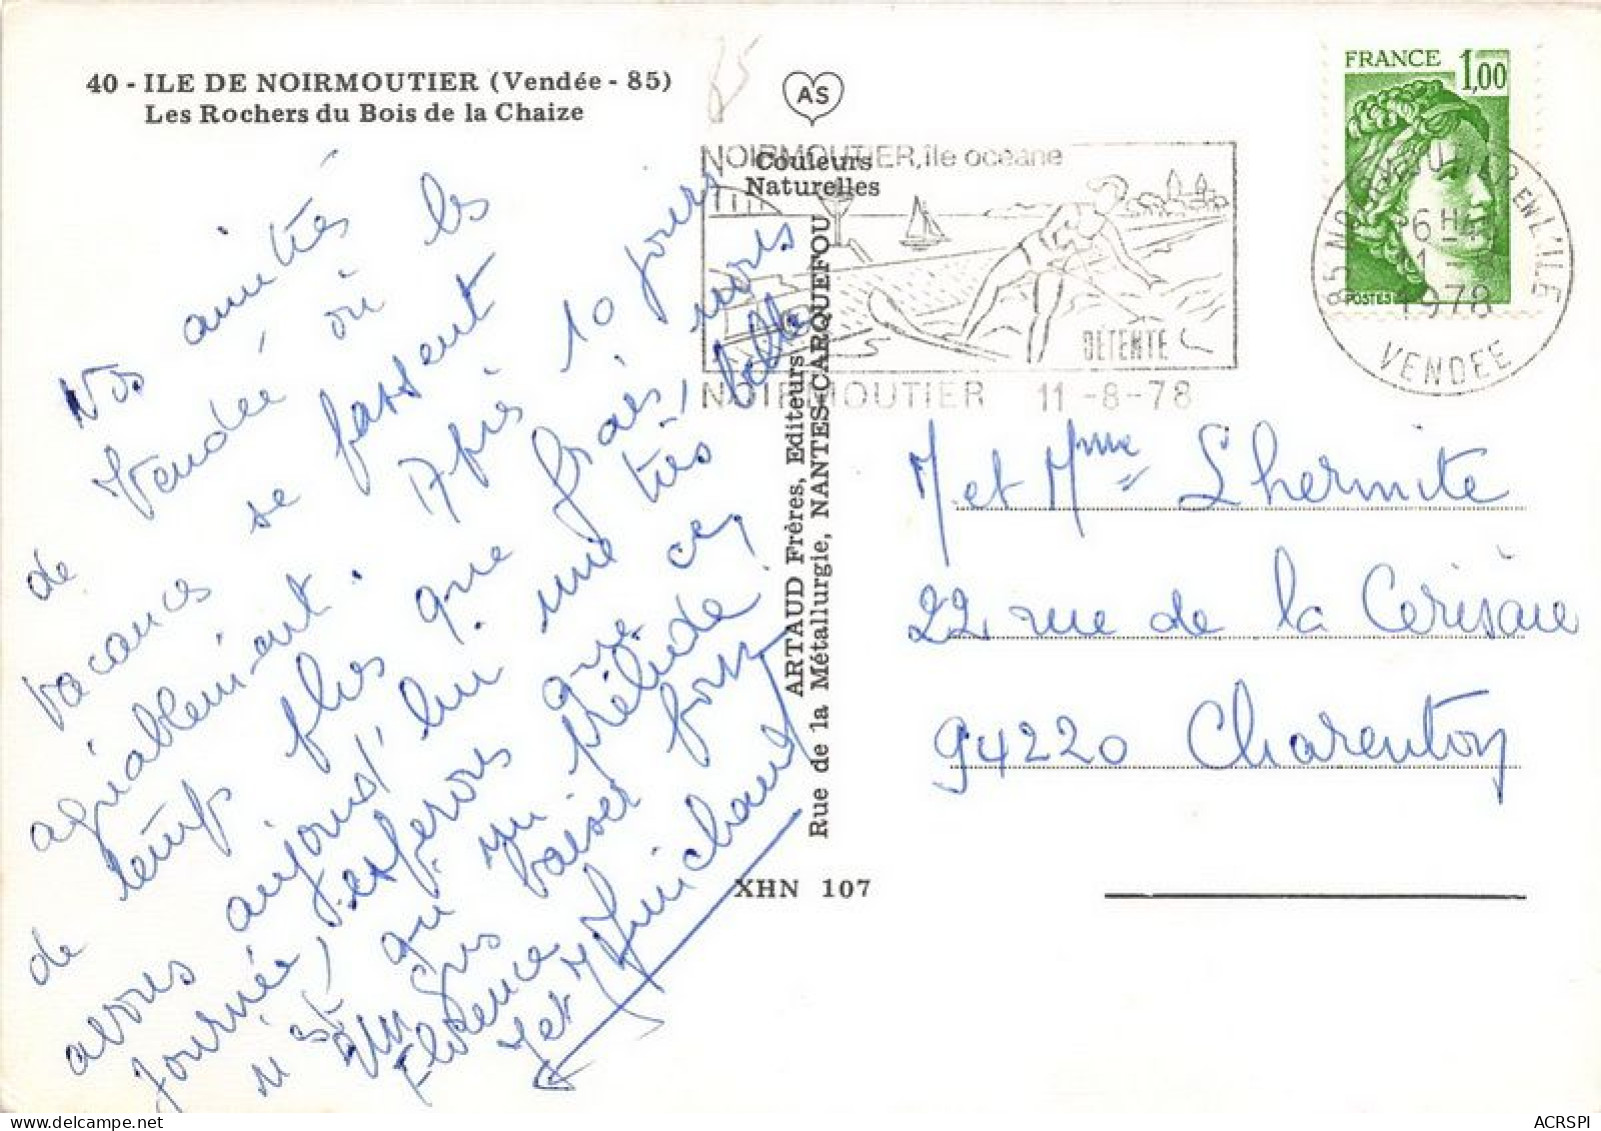 40 - ILE DE NOIRMOUTIER (Vendée - 85)
Les Rochers du Bois de la Chaize
AS
Couleurs
Naturelles
NOIRMOUTIER, île océane
DÉTENTE
NOIRMOUTIER 11-8-78
FRANCE 1,00
POSTES
85 EN L'ILE
1978
VENDEE
Nos amitiés
de Vendée où les
vacances se passent
agréablement. Après 10 jours
de temps plus que frais, nous
avons aujourd'hui une très belle
journée, espérons que ce
n'est qu'un prélude
Un gros baiser pour
Florence
M et Mme Michaud
ARTAUD Frères, Editeurs
Rue de la Métallurgie, NANTES-CARQUEFOU
XHN 107
M et Mme Lhermite
22 rue de la Cerisaie
94220 Charenton
ACRSPI